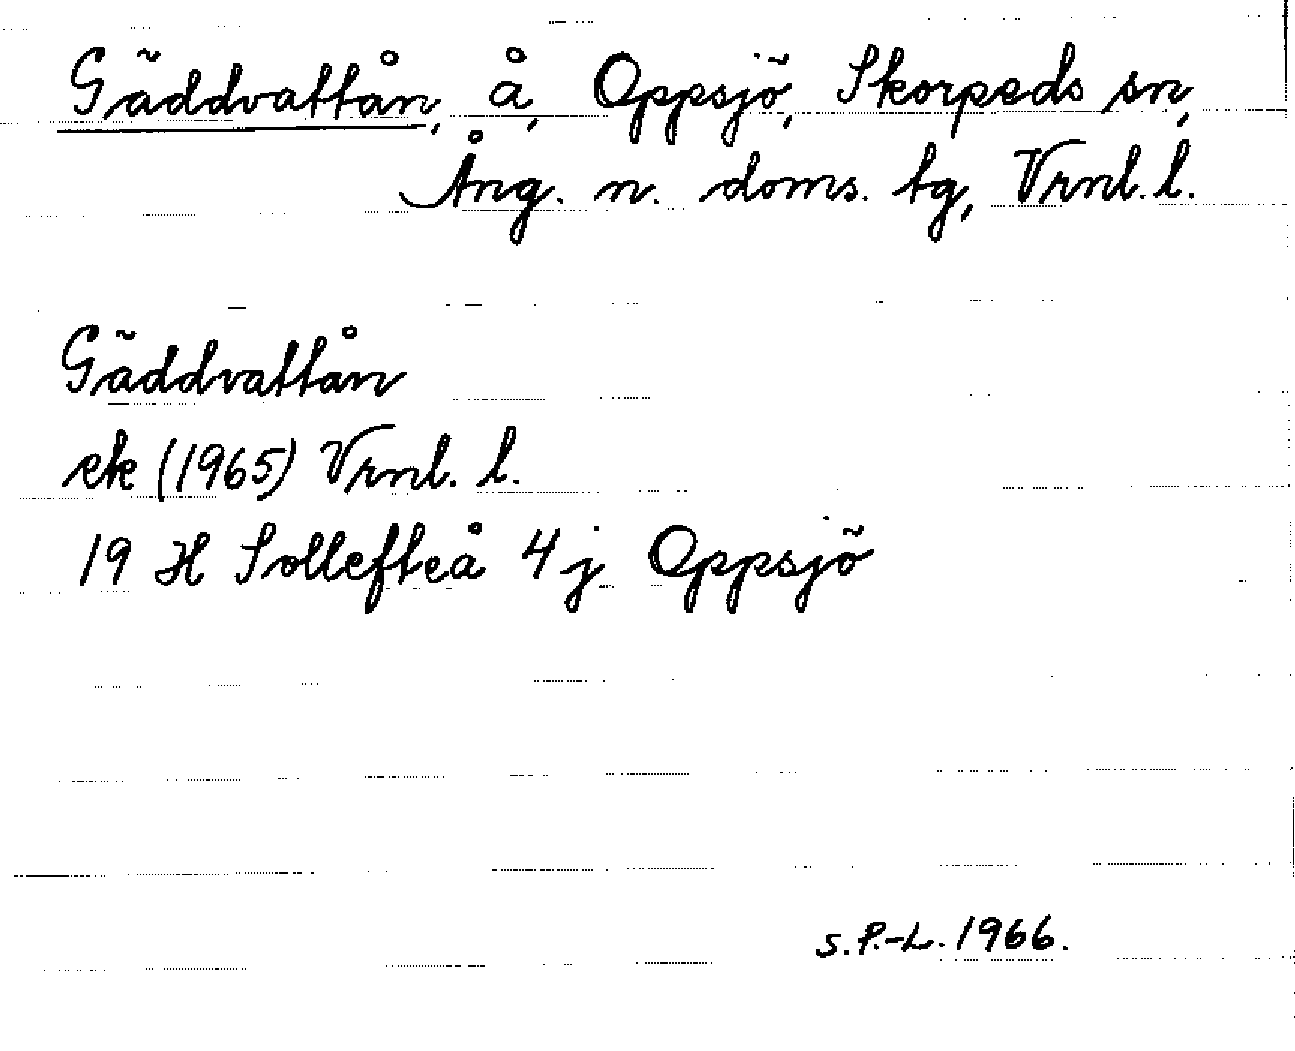 Gäddvattån, å, Oppsjö, Skorpeds sn,
Ång. n. doms. tg, Vrnl. l.
Gäddvattån
ek (1965) Vrnl. l.
19 H Sollefteå 4j Oppsjö
S.P.-L. 1966.